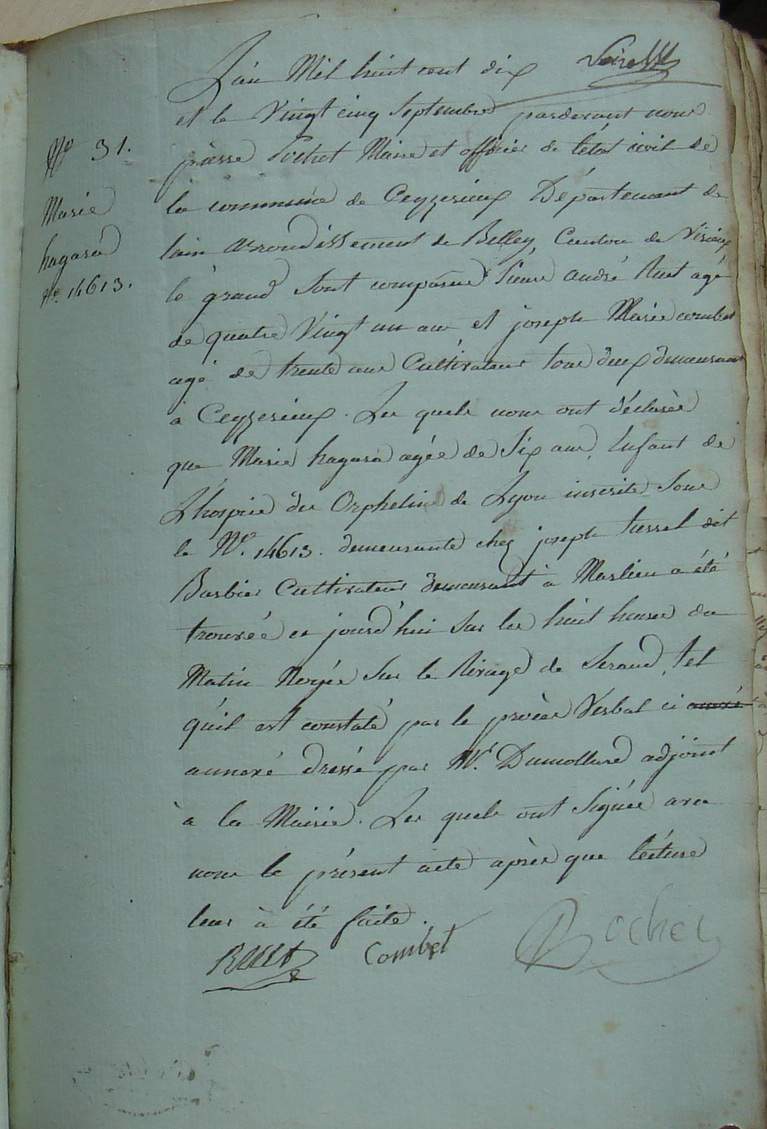 L'an Mil huit cent dix
et le Vingt cinq Septembre pardevant nous
pierre Pochet Maire et officier de l'état civil de
la commune de Ceyzerieux Département de
lain arrondissement de Belley, Canton de Virieux
le grand Sont comparu Sieur andré Ruet agé
de quatre Vingt un ans et joseph Marie combet
agé de trente ans Cultivateur tous deux demeurant
a Ceyzerieux. Les quels nous ont déclarée
que Marie hagara agée de Six ans, Enfant de
L'hospice des Orphelins de Lyon inscrite Sous
le N.º 14613. demeurante chez joseph dit
Barbier Cultivateur demeurant à Marlieu a été
trouvée ce jourd'hui Sur les huit heures du
Matin Noyée Sur le Rivage de Seraud, tel
qu'il est constaté par le procès Verbal ci annexé
annexé dressé par Mr. Dumollard adjoint
à la Mairie. Les quels ont Signée avec
nous le présent acte après que lecture
leur à été faite.
N.º 31.
Marie
hagara
N.º 14613.
Ruet Combet Pochet